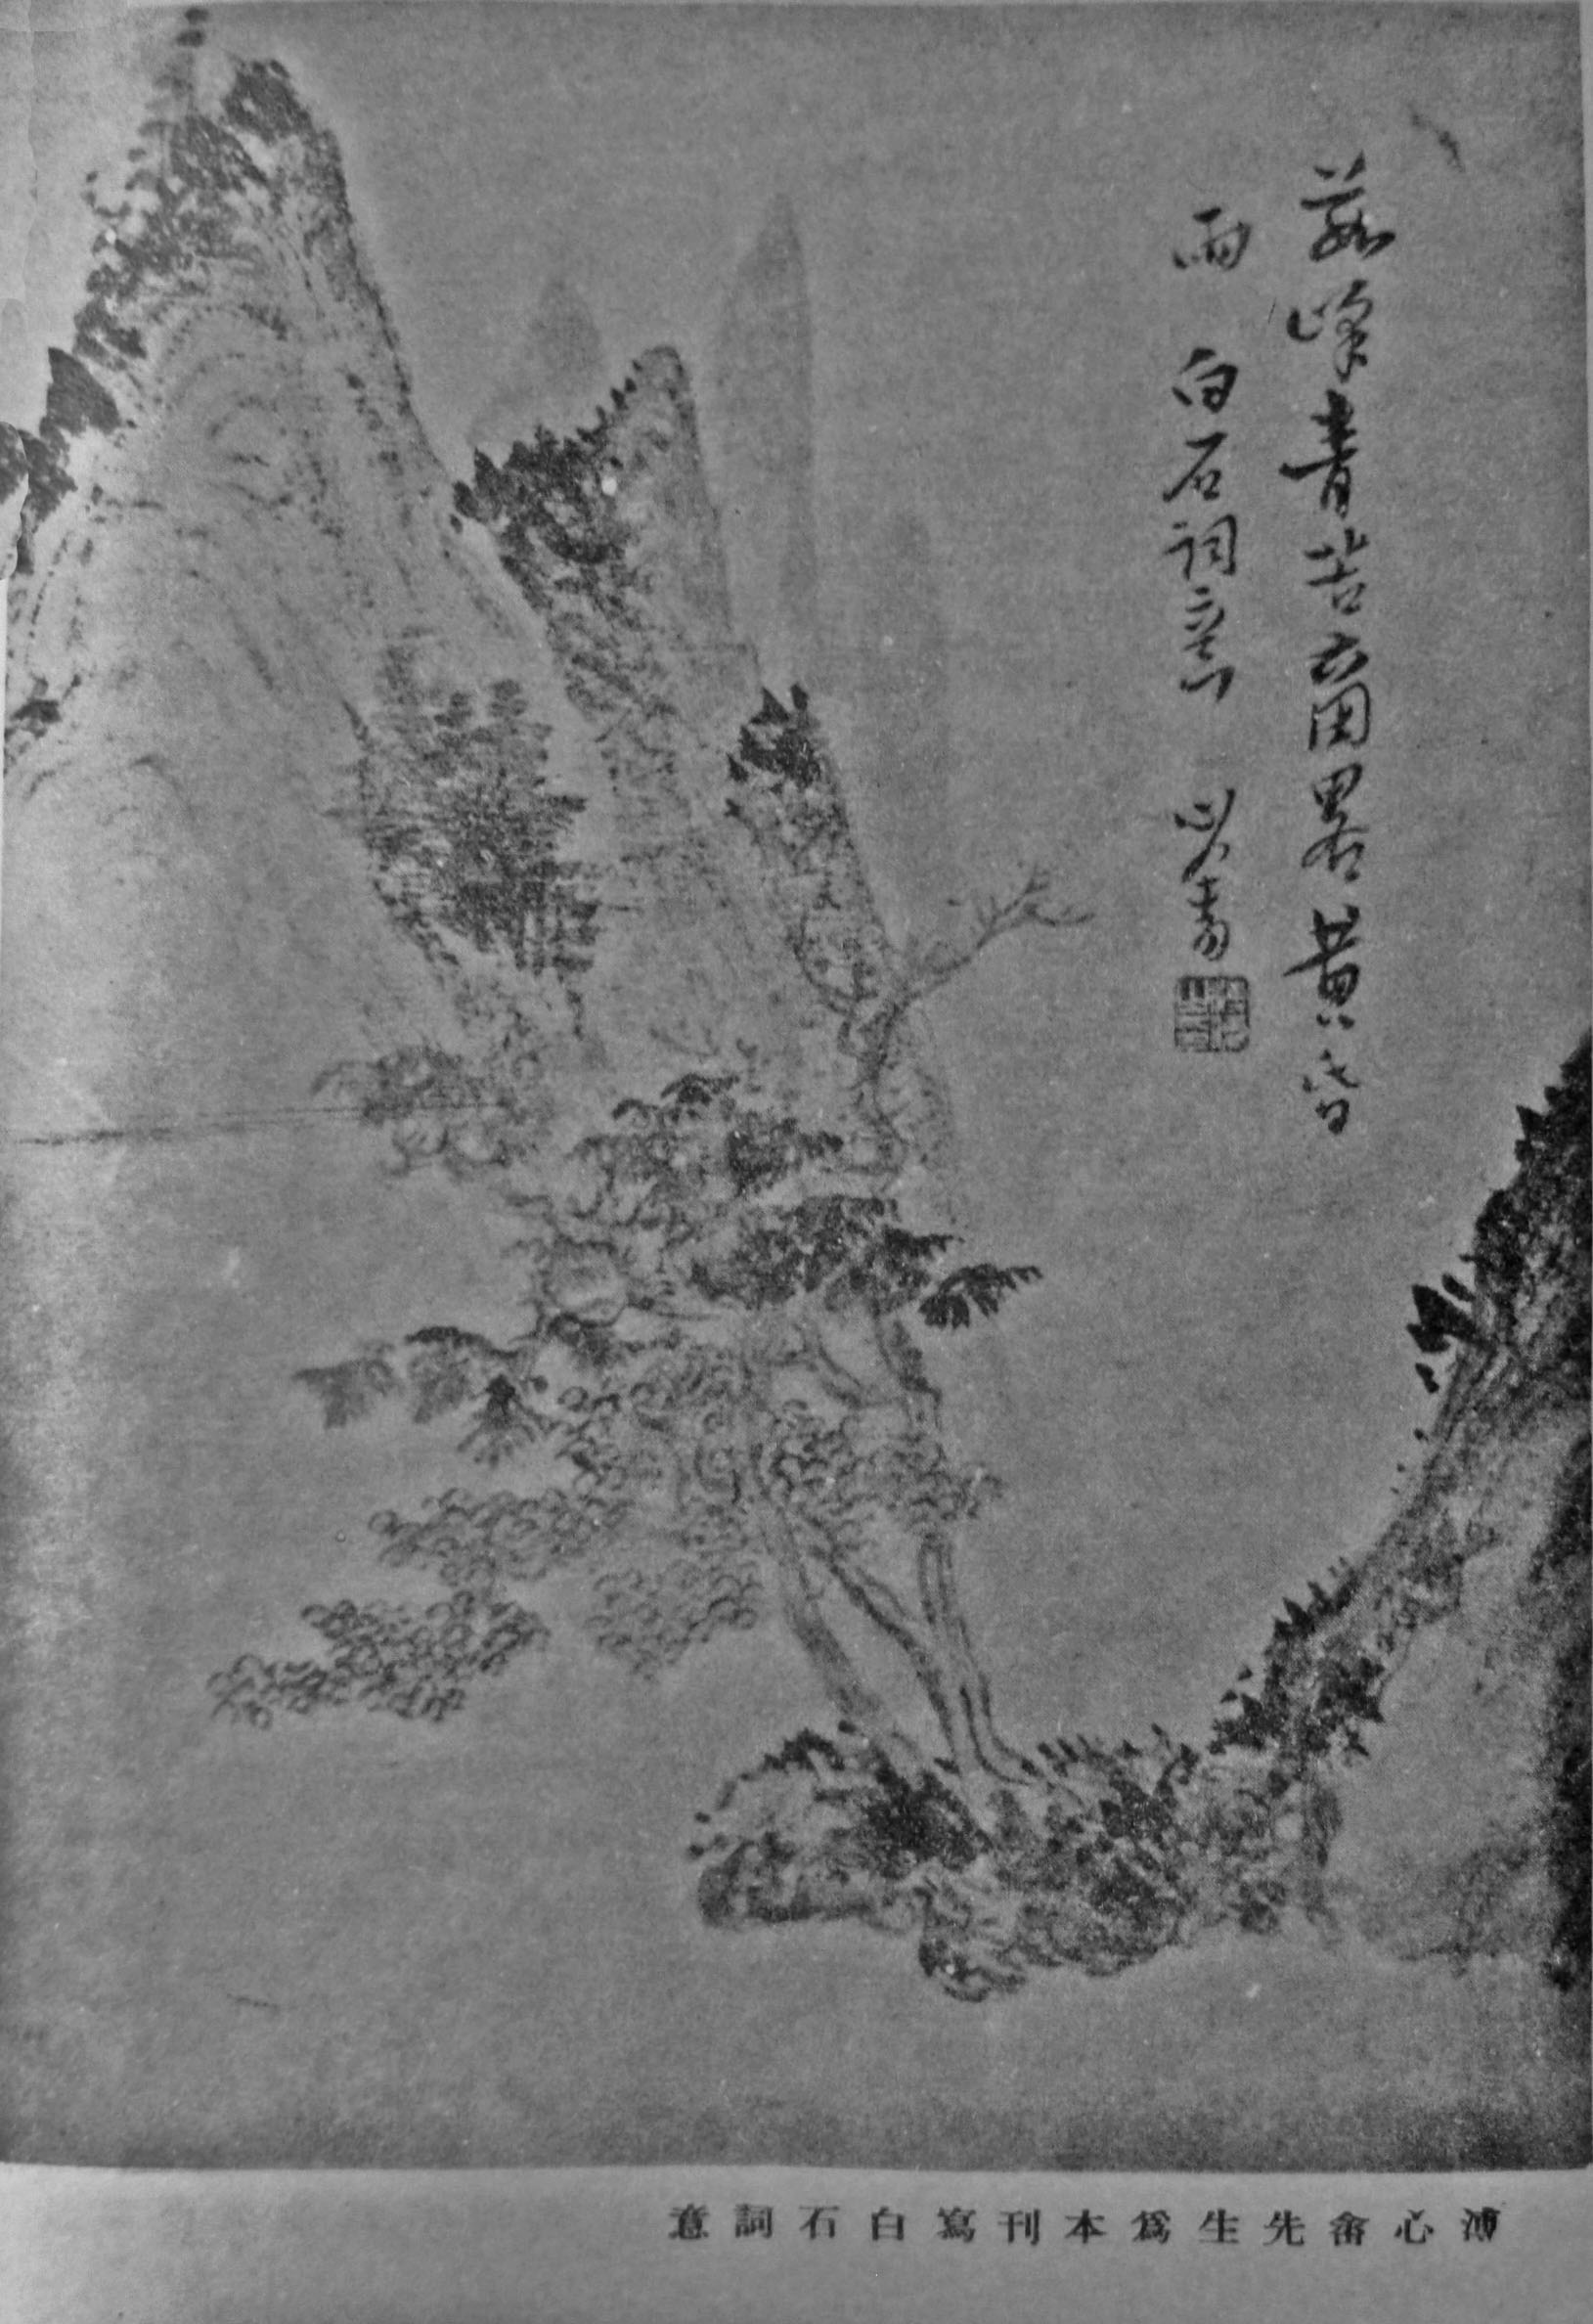 數峰青苦商畧黃昏
雨 白石詞意 心畬
溥心畬先生爲本刊寫白石詞意